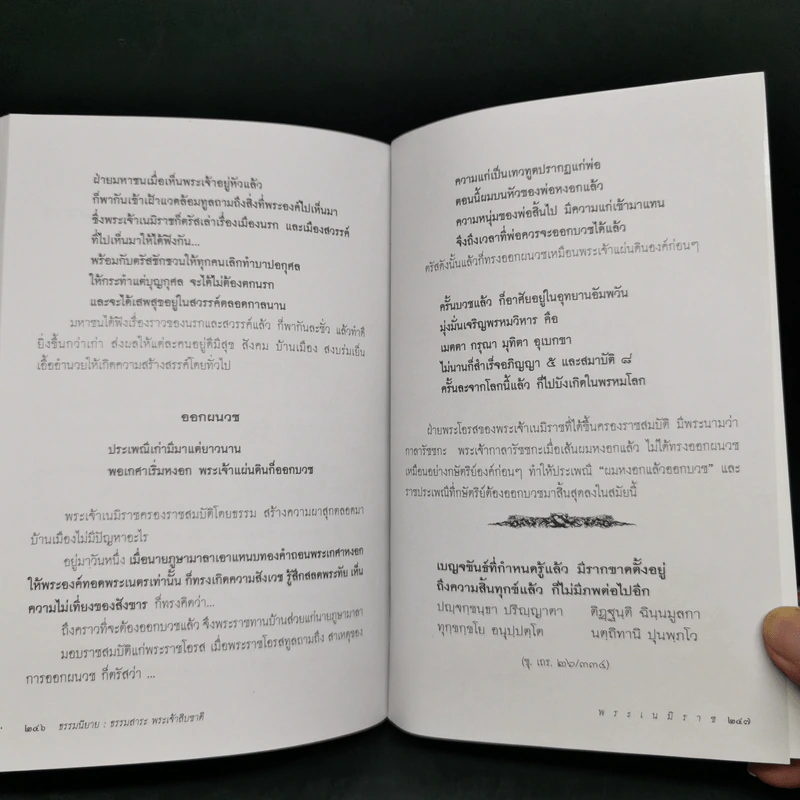 ฝ่ายมหาชนเมื่อเห็นพระเจ้าอยู่หัวแล้ว
ก็พากันเข้าเฝ้าแวดล้อมทูลถามถึงสิ่งที่พระองค์ไปเห็นมา
ซึ่งพระเจ้าเนมิราชก็ตรัสเล่าเรื่องเมืองนรก และเมืองสวรรค์
ที่ไปเห็นมาให้ได้ฟังกัน...
พร้อมกับตรัสชักชวนให้ทุกคนเลิกทำบาปอกุศล
ให้กระทำแต่บุญกุศล จะได้ไม่ต้องตกนรก
และจะได้เสพสุขอยู่ในสวรรค์ตลอดกาลนาน
มหาชนได้ฟังเรื่องราวของนรกและสวรรค์แล้ว ก็พากันละชั่ว แล้วทำดี
ยิ่งขึ้นกว่าเก่า ส่งผลให้แต่ละคนอยู่ดีมีสุข สังคม บ้านเมือง สงบร่มเย็น
เอื้ออำนวยให้เกิดความสร้างสรรค์โดยทั่วไป
ออกผนวช
ประเพณีเก่ามีมาแต่ยาวนาน
พอเกศาเริ่มหงอก พระเจ้าแผ่นดินก็ออกบวช
พระเจ้าเนมิราชครองราชสมบัติโดยธรรม สร้างความผาสุกตลอดมา
บ้านเมืองไม่มีปัญหาอะไร
อยู่มาวันหนึ่ง เมื่อนายภูษามาลาเอาแหนบทองคำถอนพระเกศาหงอก
ให้พระองค์ทอดพระเนตรเท่านั้น ก็ทรงเกิดความสังเวช รู้สึกสลดพระทัย เห็น
ความไม่เที่ยงของสังขาร ก็ทรงคิดว่า...
ถึงคราวที่จะต้องออกบวชแล้ว จึงพระราชทานบ้านส่วยแก่นายภูษามาลา
มอบราชสมบัติแก่พระราชโอรส เมื่อพระราชโอรสทูลถามถึง สาเหตุของ
การออกผนวช ก็ตรัสว่า ...
๒๔๖ ธรรมนิยาย : ธรรมสาระ พระเจ้าสิบชาติ
ความแก่เป็นเทวทูตปรากฏแก่พ่อ
ตอนนี้ผมบนหัวของพ่อหงอกแล้ว
ความหนุ่มของพ่อสิ้นไป มีความแก่เข้ามาแทน
จึงถึงเวลาที่พ่อควรจะออกบวชได้แล้ว
ตรัสดังนั้นแล้วก็ทรงออกผนวชเหมือนพระเจ้าแผ่นดินองค์ก่อนๆ
ครั้นบวชแล้ว ก็อาศัยอยู่ในอุทยานอัมพวัน
มุ่งมั่นเจริญพรหมวิหาร คือ
เมตตา กรุณา มุทิตา อุเบกขา
ไม่นานก็สำเร็จอภิญญา ๕ และสมาบัติ ๘
ครั้นละจากโลกนี้แล้ว ก็ไปบังเกิดในพรหมโลก
ฝ่ายพระโอรสของพระเจ้าเนมิราชที่ได้ขึ้นครองราชสมบัติ มีพระนามว่า
กาลารัชชกะ พระเจ้ากาลารัชชกะเมื่อเส้นผมหงอกแล้ว ไม่ได้ทรงออกผนวช
เหมือนอย่างกษัตริย์องค์ก่อนๆ ทำให้ประเพณี “ผมหงอกแล้วออกบวช” และ
ราชประเพณีที่กษัตริย์ต้องออกบวชมาสิ้นสุดลงในสมัยนี้
เบญจขันธ์ที่กำหนดรู้แล้ว มีรากขาดตั้งอยู่
ถึงความสิ้นทุกข์แล้ว ก็ไม่มีภพต่อไปอีก
ปญฺจกฺขนฺธา ปริญฺญาตา ติฏฺฐนฺติ ฉินฺนมูลกา
ทุกฺขกฺขโย อนุปฺปตฺโต นตฺถิทานิ ปุนพฺภโว
(ขุ. เถร. ๒๖/๓๓๔)
พระเนมิราช ๒๔๗